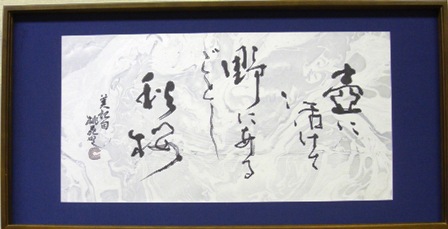 壺に
活けて
野にある
ごとし
秋桜
美記句